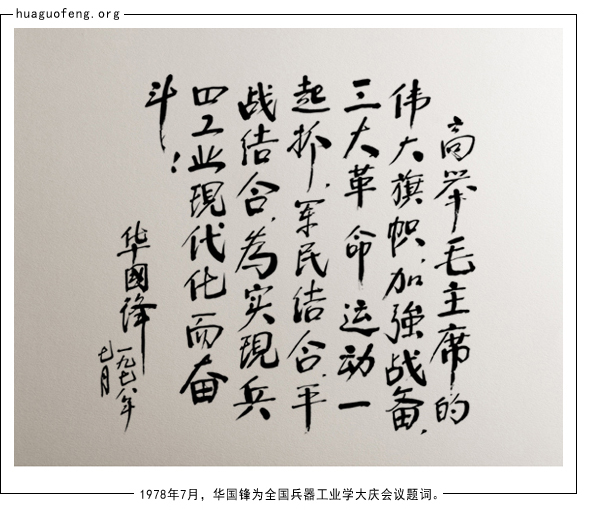 huaguofeng.org
高举毛主席的
伟大旗帜,加強战备,
三大革命运动一
起抓,军民结合,平
战结合,為实現兵
工业現代化而奋
斗!
华國锋
一九七八年
七月
1978年7月，华国锋为全国兵器工业学大庆会议题词。